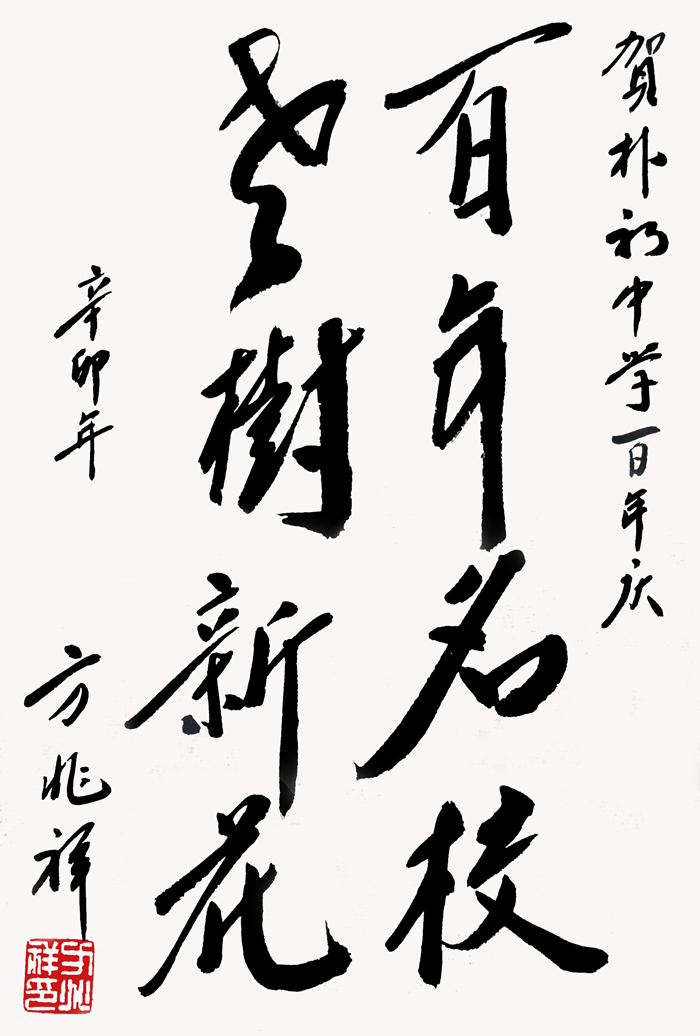 贺朴初中学一百年庆
百年名校
老樹新花
辛卯年
方兆祥
方兆祥印